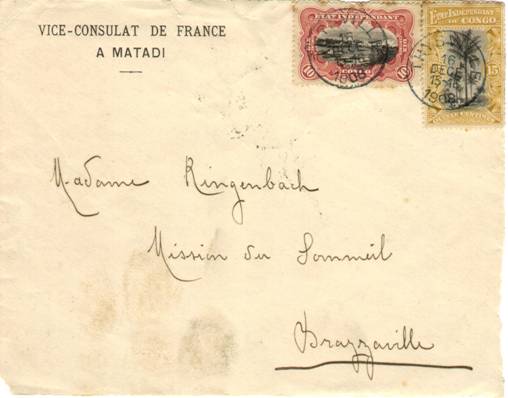 VICE-CONSULAT DE FRANCE
A MATADI
ETAT INDEPENDANT
DU CONGO
10 10
ETAT INDEPENDANT
DU CONGO
15
16
DECE
1908
1908
Madame Ringenbach
Mission du Sommeil
Brazzaville